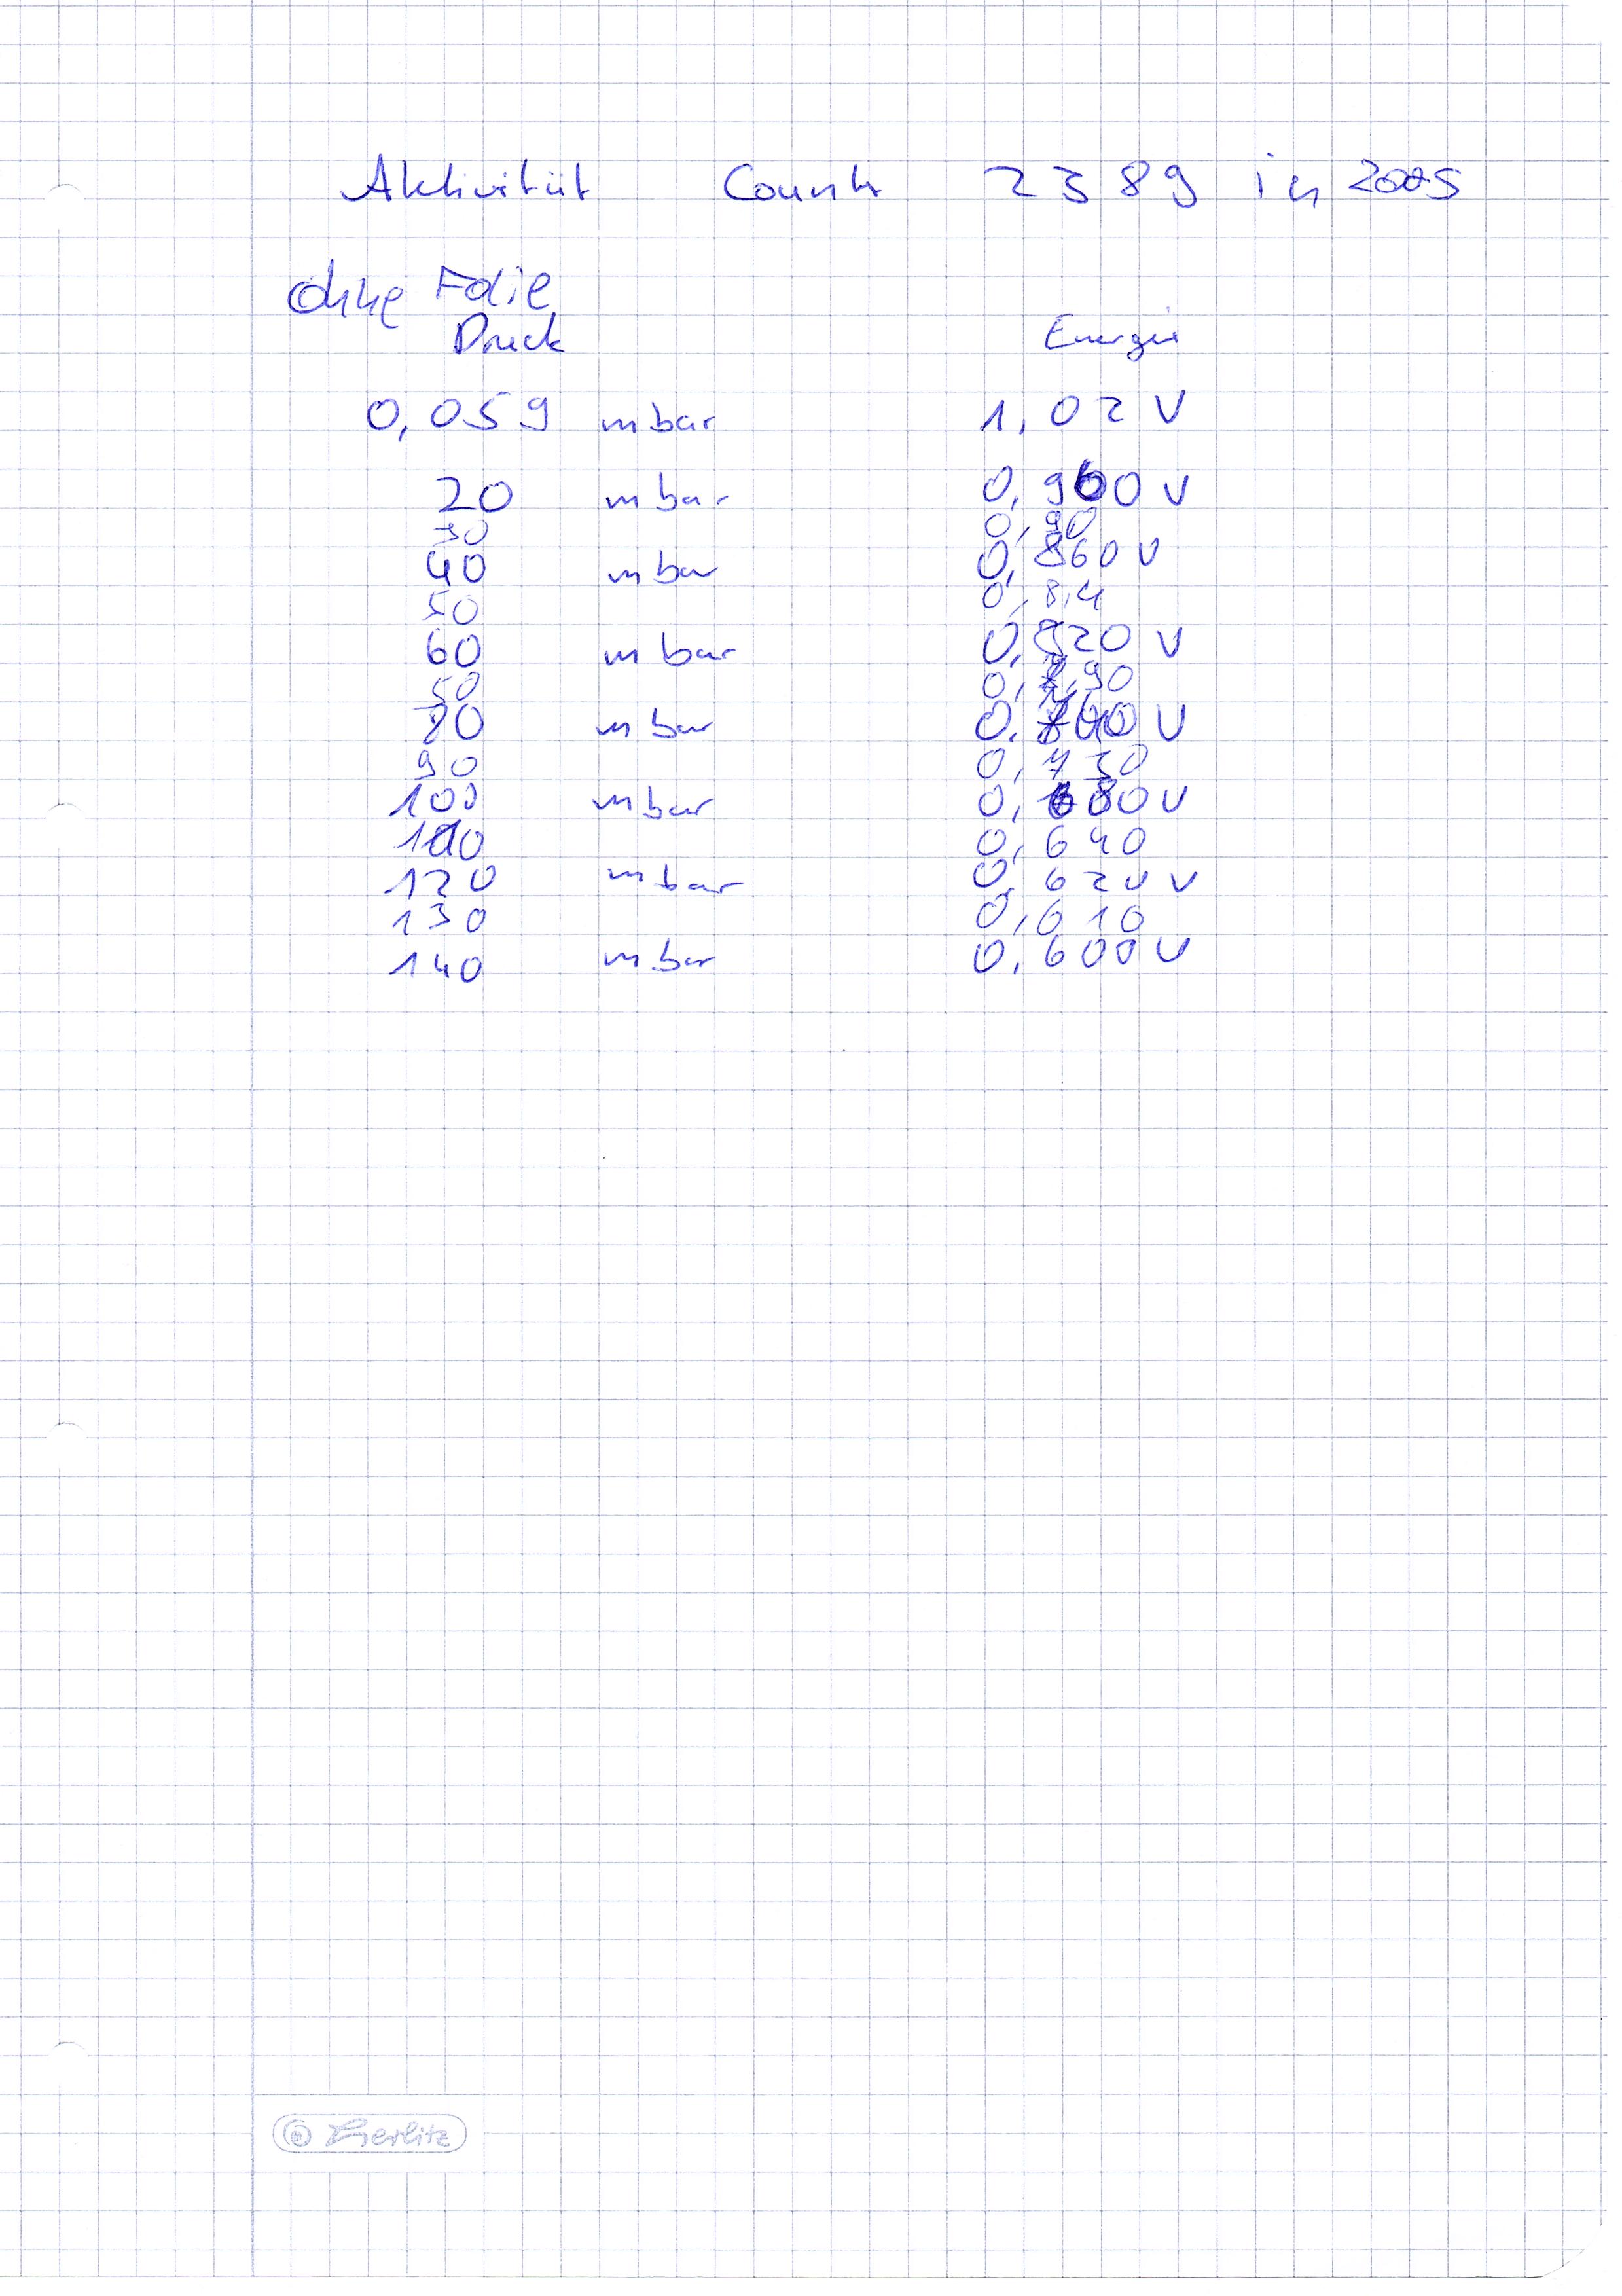 Aktivität Counts 2389 in 200s
Ohne Folie
Druck Energie
0,059 mbar 1,02 V
20 mbar 0,960 V
30 0,90
40 mbar 0,860 V
50 0,84
60 mbar 0,820 V
50 0,790
80 mbar 0,740 V
90 0,730
100 mbar 0,680 V
110 0,640
120 mbar 0,620 V
130 0,610
140 mbar 0,600 V
Herlitz